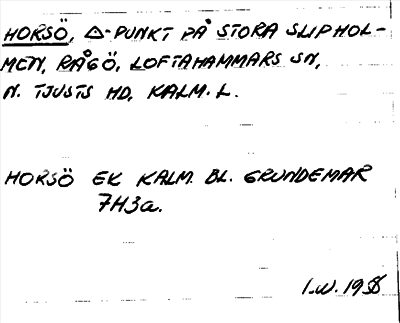 HORSÖ, △-PUNKT PÅ STORA SLIPHOL-
MEN, RÅGÖ, LOFTAHAMMARS SN,
N. TJUSTS HD, KALM. L.
HORSÖ EK KALM. BL. GRUNDEMAR
7H3a.
I.W. 19